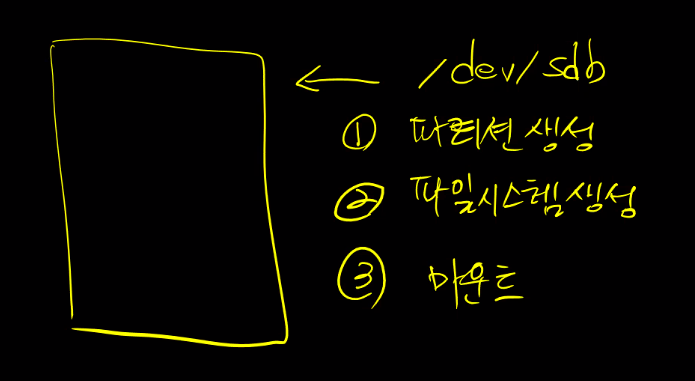 ← /dev/sdb
① 파티션 생성
② 파일시스템 생성
③ 마운트